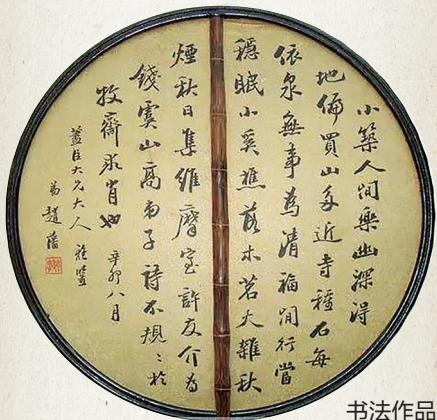 小築人間樂幽深得
地偏買山多近寺種石每
依泉無事為清福閒行當
穩眠小奚樵落木茗火雜秋
煙秋日集維摩室許友介為
錢虞山高弟子詩不規規於
牧齋求肖也 辛卯八月
藎臣大兄大人雅鑒
弟趙藩
书法作品